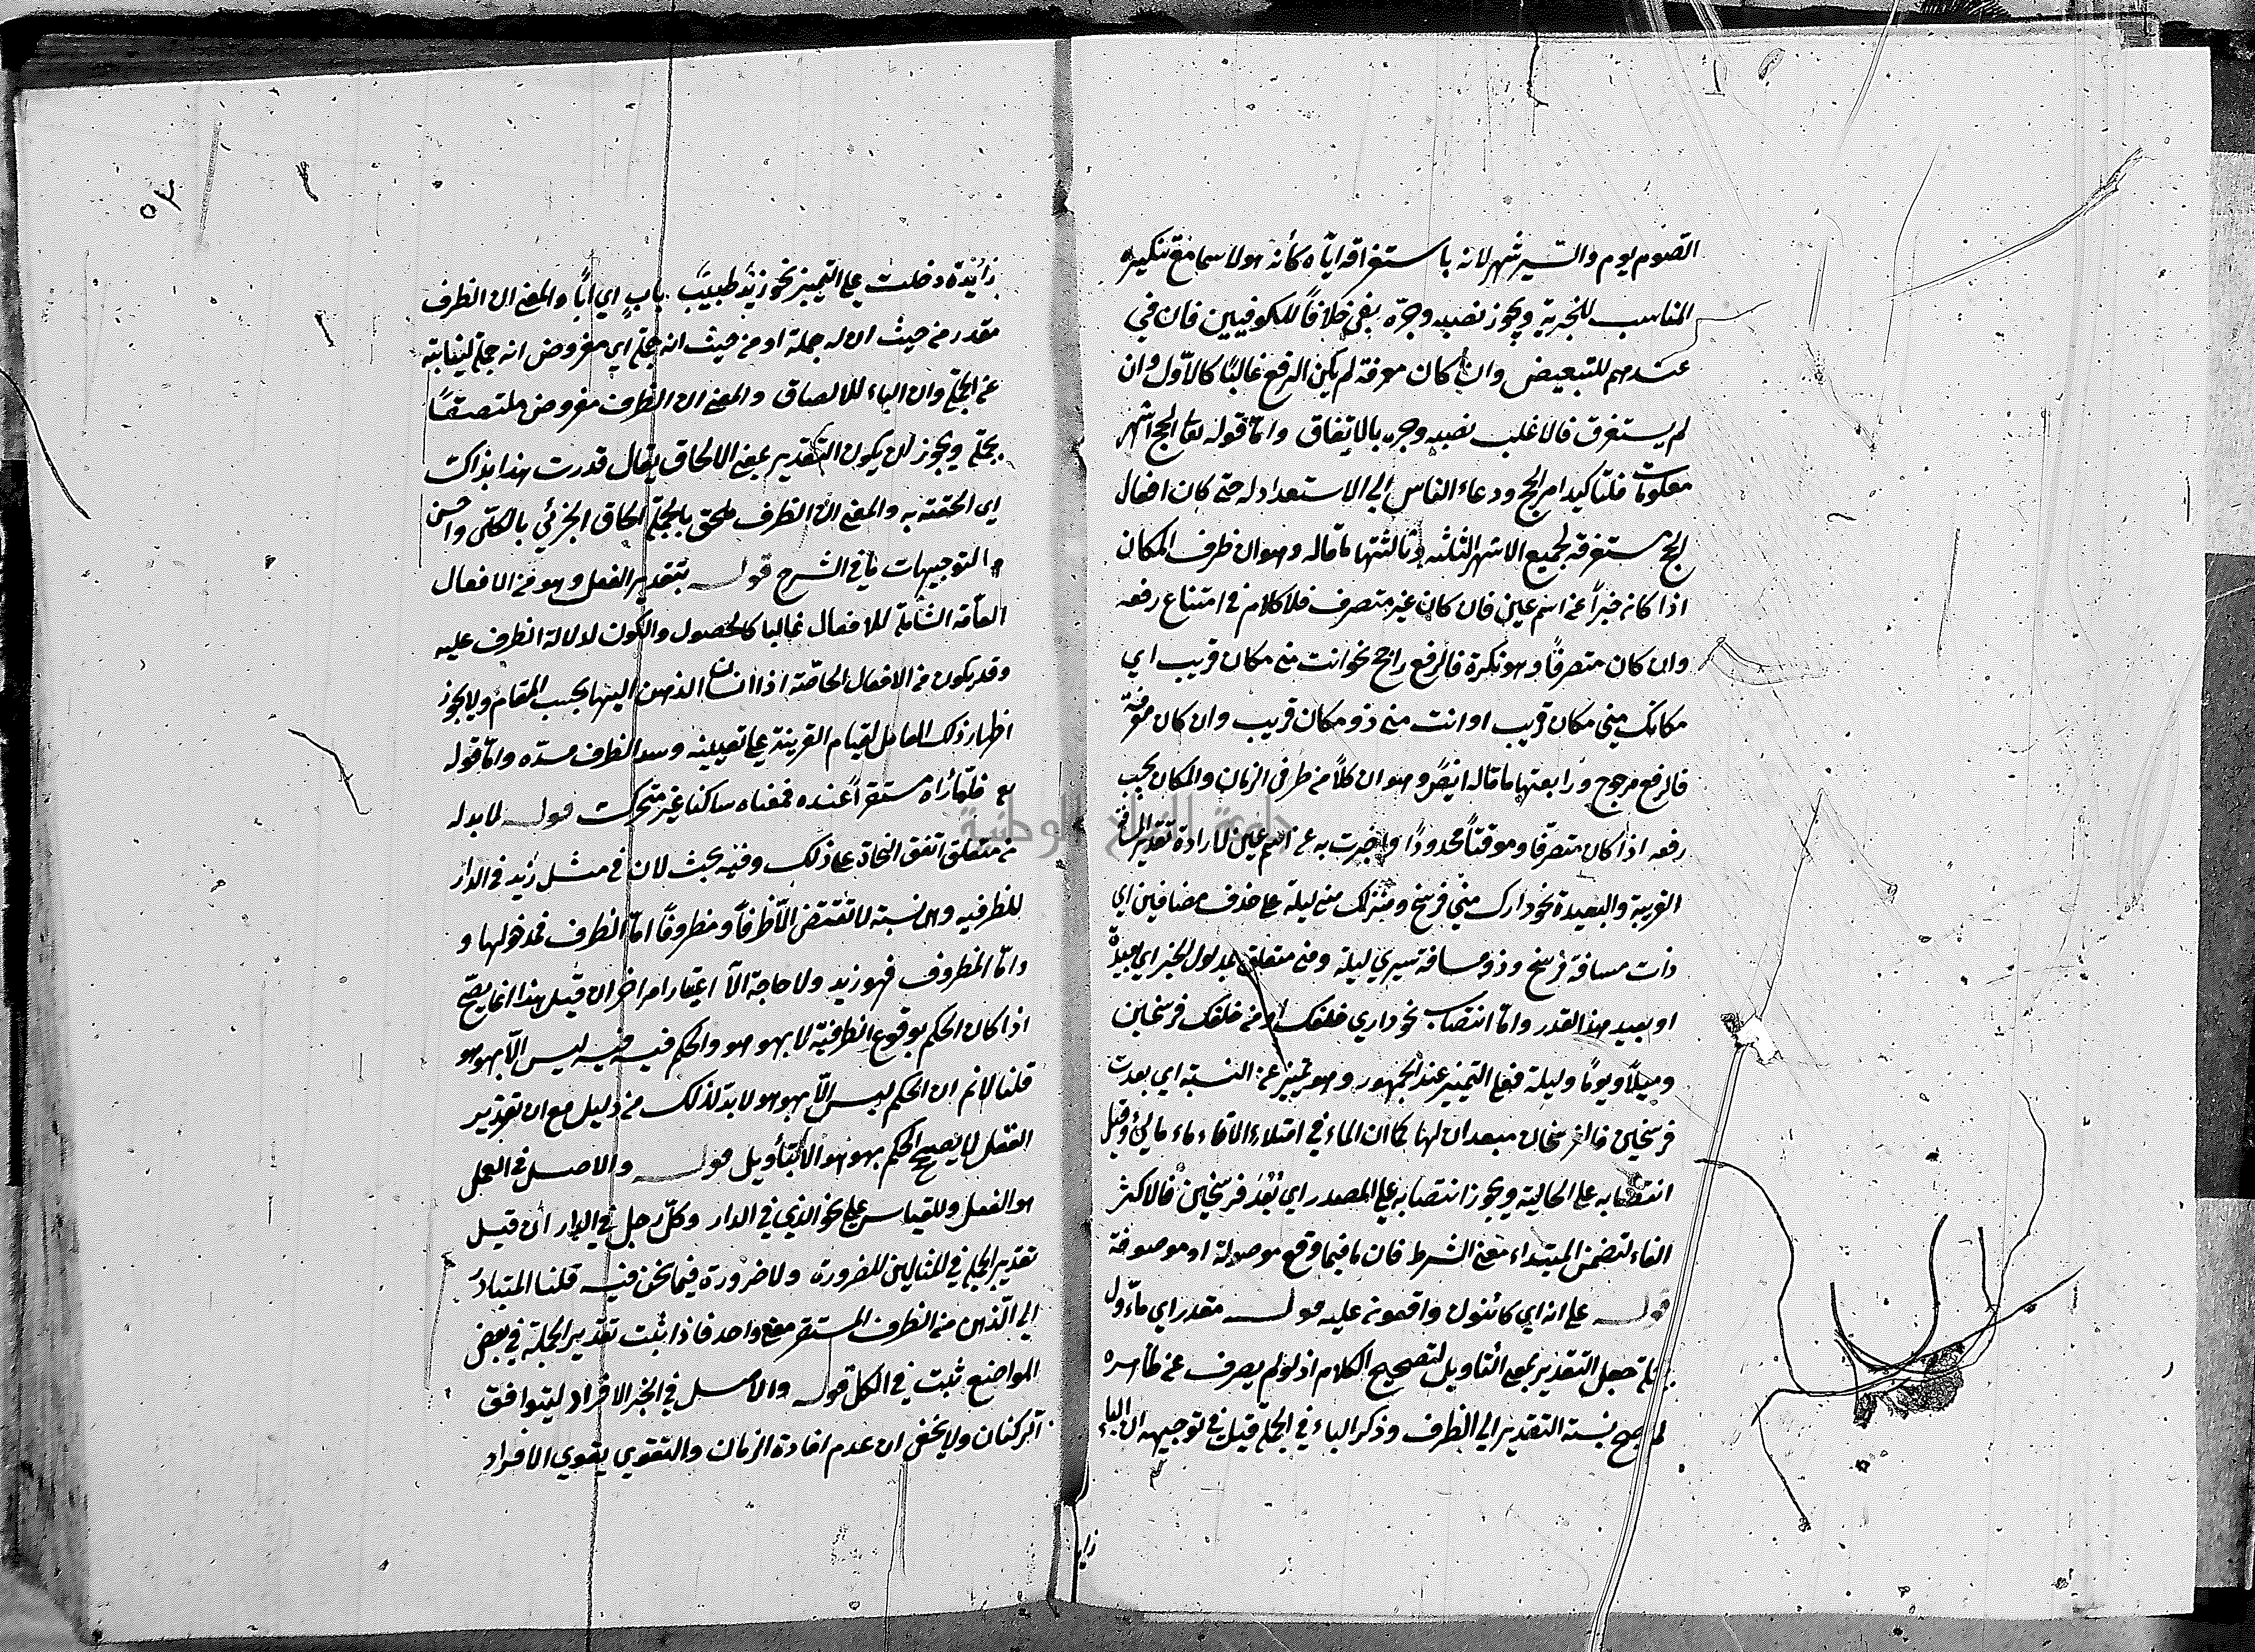 الصوم يوم والسير شهر لانه باستغراقه اياه كأنه هو لا سما مع تنكيره
المناسب للخبرية ويجوز نصبه وجره بفى خلافاً للكوفيين فان في
عندهم للتبعيض وان كان معرفة لم يكن الرفع غالبًا كالاوّل وان
لم يستغرق فالاغلب نصبه وجره بالاتفاق وامّا قوله تعا الحج اشهر
معلومات فلتاكيد امر الحج ودعاء الناس الى الاستعداد له حتى كان افعال
الحج مستغرقة لجميع الاشهر الثلثه وثالثتها ما قاله وهو ان ظرف المكان
اذا كان خبراً عن اسم عين فان كان غير متصرف فلا كلام في امتناع رفعه
وان كان متصرفًا وهو نكرة فالرفع راجح نحو انت منى مكان قريب اي
مكانك مني مكان قريب او انت منى ذو مكان قريب وان كان معرفة
فالرفع مرجوح ورابعتها ما قاله ايضًا وهو ان كلاً من ظرفى الزمان والمكان يجب
رفعه اذا كان متصرّفا وموقتاً محدودًا واخبرت به عن اسم عين لارادة تقدير المسافة
القريبة والبعيدة نحو دارك منّي فرسخ ومنزلك منى ليلة على حذف مضافين اي
ذات مسافة فرسخ وذو مسافة سيرى ليلة ومنى متعلق بمدلول الخبر اي بعيدة
او بعيد هذا القدر وامّا انتصاب نحو داري خلفك او من خلفك فرسخين
وميلاً ويومًا وليلة فعلى التمييز عند الجمهور وهو تمييز عن النسبة اي بعدت
فرسخين فالفرسخان مبعدان لها كما ان الماء في امتلاء الاناء ماء مالئ وقيل
انتصابه على الحالية ويجوز انتصابه على المصدر اي بُعْدَ فرسخين فالاكثر
الفاء لتضمن المبتداء معنى الشرط فان ما فيما وقع موصولة او موصوفة
قوله على انه اي كائنون واقعون عليه قوله مقدر اي مأوّل
بجملة جعل التقدير بمعنى التأويل لتصحيح الكلام اذ لو لم يصرف عن ظاهره
لما صح نسبة التقدير الى الظرف وذكر الباء في الجملة قيل في توجيهه ان الباء
زايد
٥٣
زائدة دخلت على التمييز نحو زيد طبيب باب اي اباً والمعنى ان الظرف
مقدر من حيث ان له جملة او من حيث انه جملة اي مفروض انه جملة لنيابته
عن الجملة وان الباء للالصاق والمعنى ان الظرف مفروض ملتصقًا
بجملة ويجوز ان يكون التقدير بمعنى الالحاق يقال قدرت هذا بذاك
اي الحقته به والمعنى ان الظرف ملحق بالجملة الحاق الجزئي بالكلّى واحسن
التوجيهات ما في الشرح قوله بتقدير الفعل وهو من الافعال
العامّة الشاملة للافعال غالبا كالحصول والكون لدلالة الظرف عليه
وقد يكون من الافعال الخاصّة اذا انساق الذهن اليها بحسب المقام ولا يجوز
اظهار ذلك العامل لقيام القرينة على تعيينه وسد الظرف مسدّه وامّا قوله
تع فلمّا رآه مستقراً عنده فمعناه ساكنا غير متحرك قوله لما بد له
من متعلق اتفق النحاة على ذلك وفيه بحث لان في مثل زيد في الدار
للظرفيه وهى نسبة لا تقتضى الّا ظرفاً ومظروفاً امّا الظرف فمدخولها و
وامّا المظروف فهو زيد ولا حاجة الّا اعتبار امر اخر ان قيل هذا انما يصح
اذا كان الحكم بوقوع الظرفيّة لا بهو هو والحكم فيه فيه ليس الّا بهو هو
قلنا لا نم ان الحكم ليس الّا بهو هو لا بد لذلك من دليل مع ان تقدير
الفعل لا يصحح الحكم بهو هو الا بتأويل قوله والاصل في العمل
هو الفعل وللقياس على نحو الذي في الدار وكلّ رجل في الدار ان قيل
تقدير الجملة في المثالين للضرورة ولا ضرورة فيما نحن فيه قلنا المتبادر
الى الذهن من الظرف المستقر معنى واحد فاذا ثبت تقدير الجملة في بعض
المواضع ثبت في الكل قوله والاصل في الخبر الافراد ليتوافق
الركنان ولا يخفى ان عدم افادة الزمان والتقوي يقوي الافراد